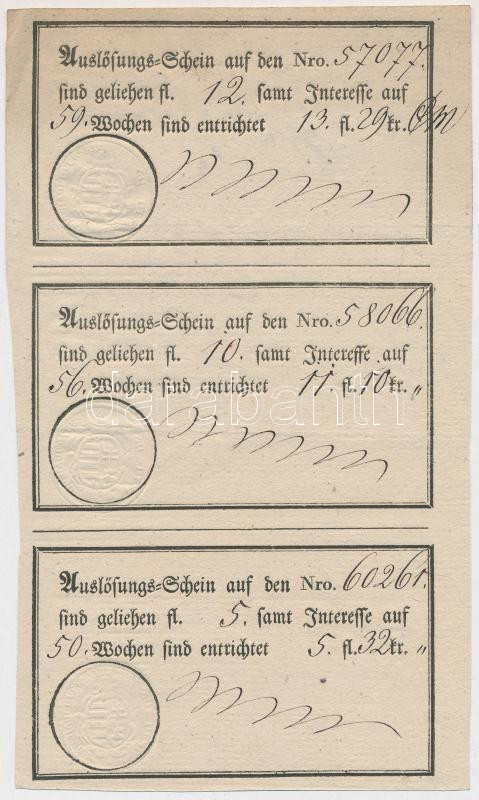 Auslösungs=Schein auf den Nro. 57077.
sind geliehen fl. 12. samt Interesse auf
59. Wochen sind entrichtet 13. fl. 29 kr.
Auslösungs=Schein auf den Nro. 58066.
sind geliehen fl. 10. samt Interesse auf
56. Wochen sind entrichtet 11. fl. 10 kr. „
darabanth
Auslösungs=Schein auf den Nro. 60261.
sind geliehen fl. 5. samt Interesse auf
50. Wochen sind entrichtet 5. fl. 32 kr. „